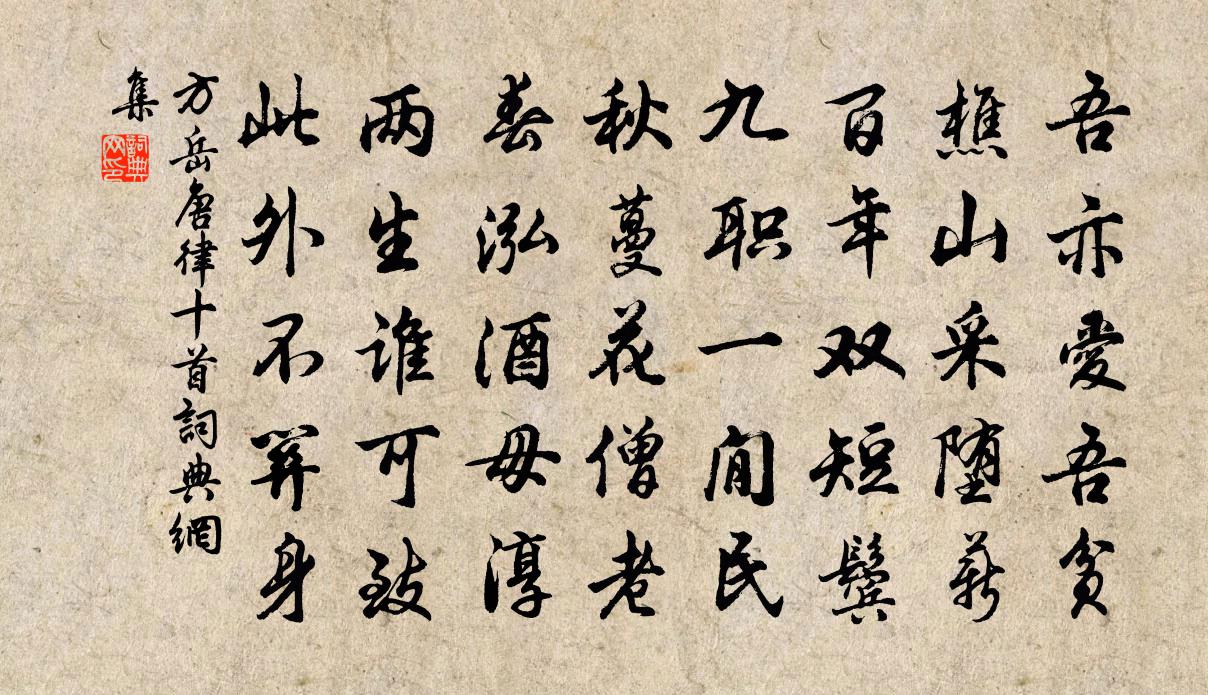 吾亦爱吾贫
樵山采堕薪
百年双短鬓
九职一闲民
秋蔓花僧老
春泓酒毋淳
两生谁可致
此外不算身
方岳唐律十首詞典網
集
詞典
网印